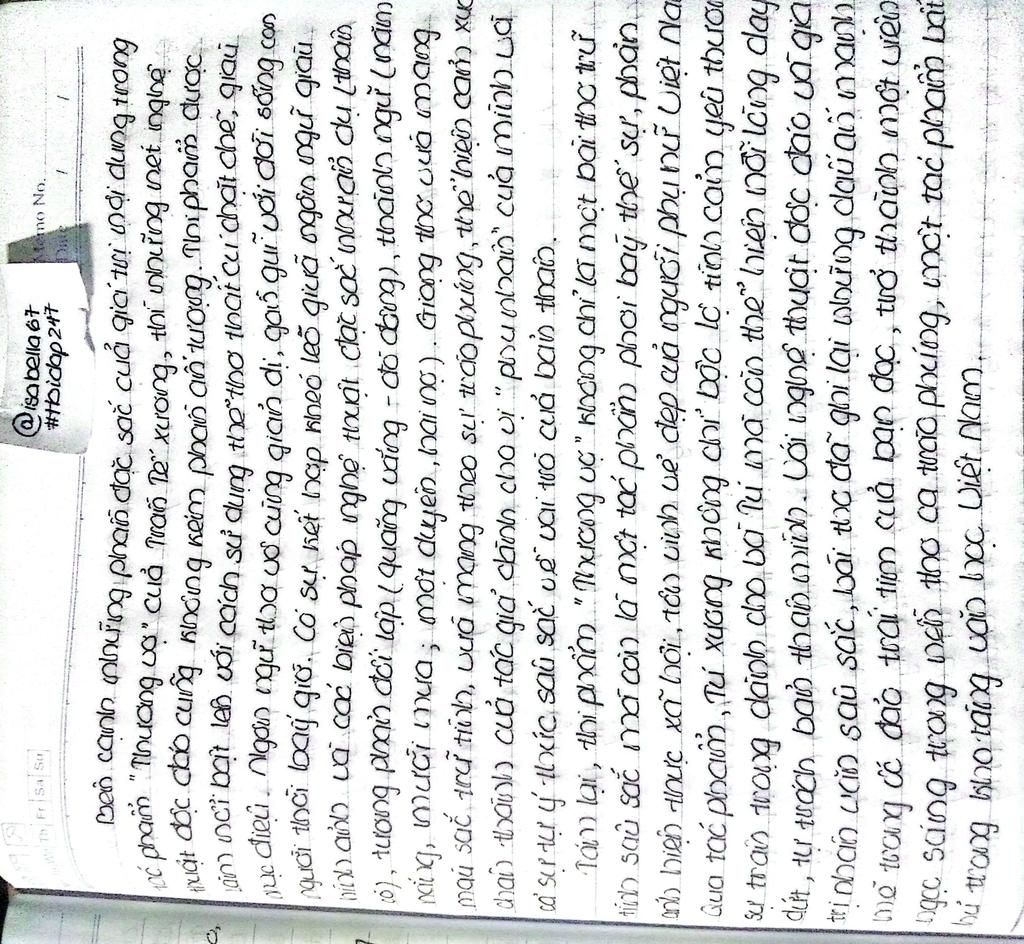 Memo No.
Date / /
Th Fri Sa Su
@isabella67
#tbidap247
Bên cạnh những phần đặc sắc của giá trị nội dung trong
tác phẩm "Thương vợ" của Trần Tế Xương, thì những nét nghệ
thuật độc đáo cũng không kém phần ấn tượng. Thi phẩm được
làm nổi bật lên với cách sử dụng thể thơ thất cú chặt chẽ, giàu
nhạc điệu. Ngôn ngữ thơ vô cùng giản dị, gần gũi với đời sống con
người thời bấy giờ. Có sự kết hợp khéo léo giữa ngôn ngữ giàu
hình ảnh và các biện pháp nghệ thuật đặc sắc như ẩn dụ (thân
cò), tương phản đối lập (quãng vắng - đò đông), thành ngữ (năm
nắng, mười mưa; một duyên, hai nợ). Giọng thơ vừa mang
màu sắc trữ tình, vừa mang theo sự trào phúng, thể hiện cảm xúc
chân thành của tác giả dành cho vị "phu nhân" của mình và
cả sự tự ý thức, sâu sắc về vai trò của bản thân.
Tóm lại, thi phẩm "Thương vợ" không chỉ là một bài thơ trữ
tình sâu sắc mà còn là một tác phẩm phơi bày thế sự, phản
ánh hiện thực xã hội, tôn vinh vẻ đẹp của người phụ nữ Việt Na
Qua tác phẩm, Tú Xương không chỉ bộc lộ tình cảm yêu thươn
sự trân trọng dành cho bà Tú mà còn thể hiện nỗi lòng day
dứt, tự trách bản thân mình. Với nghệ thuật độc đáo và giá
trị nhân văn sâu sắc, bài thơ đã ghi lại những dấu ấn mạnh
mẽ trong độc đáo trái tim của bạn đọc, trở thành một viên
ngọc sáng trong nền thơ ca trào phúng, một tác phẩm bất
hủ trong kho tàng văn học Việt Nam.